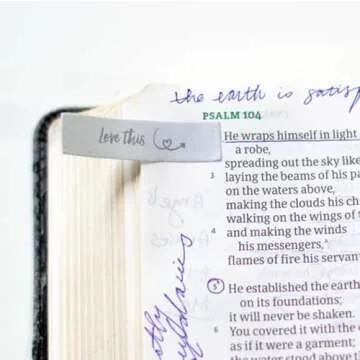 the earth is satisf
PSALM 104
Love this
He wraps himself in light
a robe,
spreading out the sky like
3 laying the beams of his pa
on the waters above,
making the clouds his ch
walking on the wings of t
4 and making the winds
his messengers,ᴬ
flames of fire his servan
5 He established the earth
on its foundations;
it will never be shaken.
6 You covered it with the d
as if it were a garment;
the water stood above t